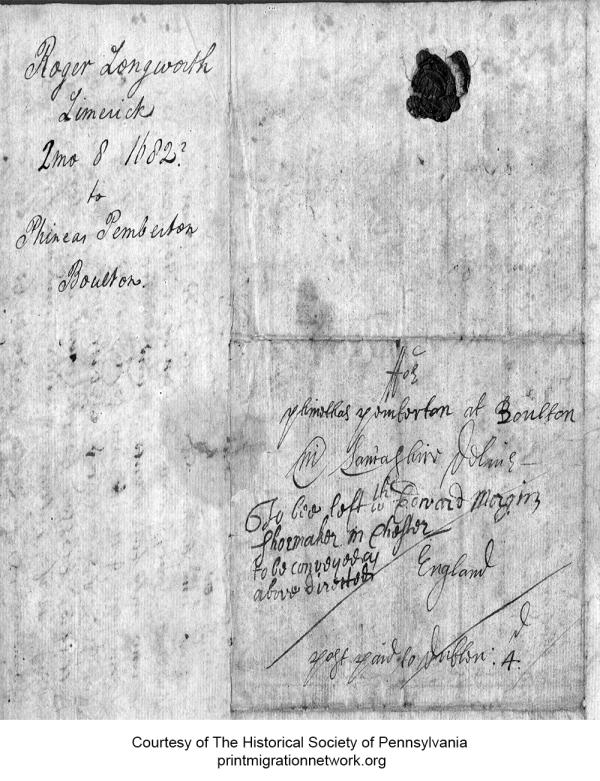 Roger Longworth
Limerick
2mo 8 1682?
to
Phineas Pemberton
Boulton.
ffor
phinehas pemberton at Boulton
in Lancashire Deliver
To bee left wth Edward Morgin
Shoemaker in Chester
to be conveyed as
above directed
England
post paid to Dublin: 4d
Courtesy of The Historical Society of Pennsylvania
printmigrationnetwork.org